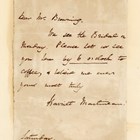 Dear Mr. Browning,
We see the Bridell on
Monday. Please let us see
you here by 6 o'clock to
coffee, & believe me ever
yours most truly
Harriet Martineau
Saturday